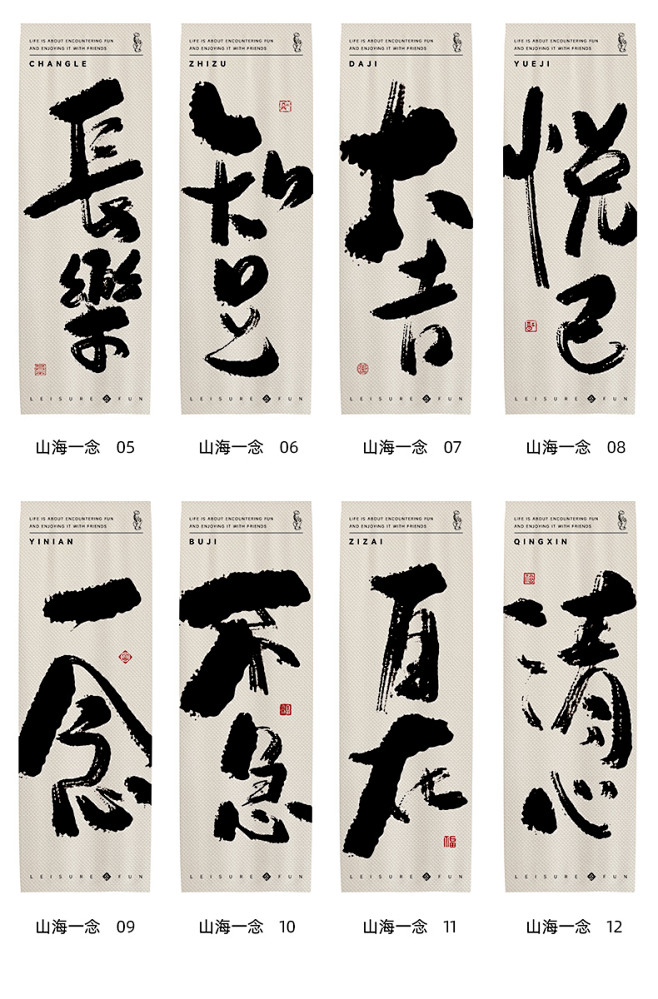 LIFE IS ABOUT ENCOUNTERING FUN
AND ENJOYING IT WITH FRIENDS
CHANGLE
長樂
LEISURE FUN
山海一念 05
LIFE IS ABOUT ENCOUNTERING FUN
AND ENJOYING IT WITH FRIENDS
ZHIZU
知足
LEISURE FUN
山海一念 06
LIFE IS ABOUT ENCOUNTERING FUN
AND ENJOYING IT WITH FRIENDS
DAJI
大吉
LEISURE FUN
山海一念 07
LIFE IS ABOUT ENCOUNTERING FUN
AND ENJOYING IT WITH FRIENDS
YUEJI
悦己
LEISURE FUN
山海一念 08
LIFE IS ABOUT ENCOUNTERING FUN
AND ENJOYING IT WITH FRIENDS
YINIAN
一念
LEISURE FUN
山海一念 09
LIFE IS ABOUT ENCOUNTERING FUN
AND ENJOYING IT WITH FRIENDS
BUJI
不急
LEISURE FUN
山海一念 10
LIFE IS ABOUT ENCOUNTERING FUN
AND ENJOYING IT WITH FRIENDS
ZIZAI
自在
福
LEISURE FUN
山海一念 11
LIFE IS ABOUT ENCOUNTERING FUN
AND ENJOYING IT WITH FRIENDS
QINGXIN
清心
LEISURE FUN
山海一念 12